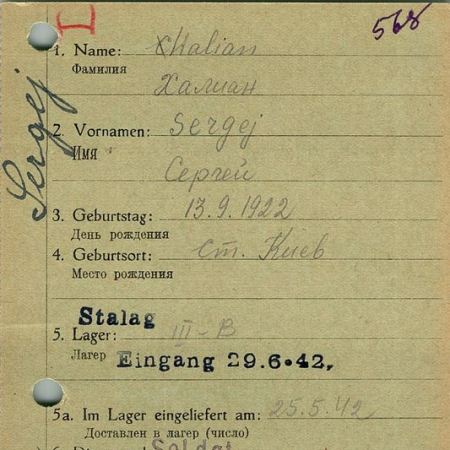 568
1. Name: Khalian
Фамилия
Халиан
Sergej
2. Vornamen: Sergej
Имя
Сергей
3. Geburtstag: 13.9.1922
День рождения
4. Geburtsort: ст. Киев
Место рождения
Stalag
5. Lager: III-B
Лагер Eingang 29.6.42,
5a. Im Lager eingeliefert am: 25.5.42
Доставлен в лагер (число)
Soldat